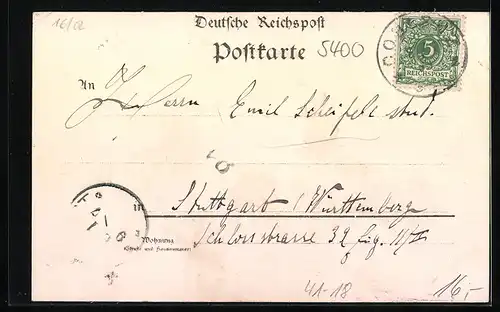 16/a
Deutsche Reichspost
Postkarte
5400
5
REICHSPOST
An Herrn Emil Scheifele stud.
in Stuttgart (Württemberg
Wohnung
(Straße und Hausnummer)
Schlossstrasse
41-18
16,-